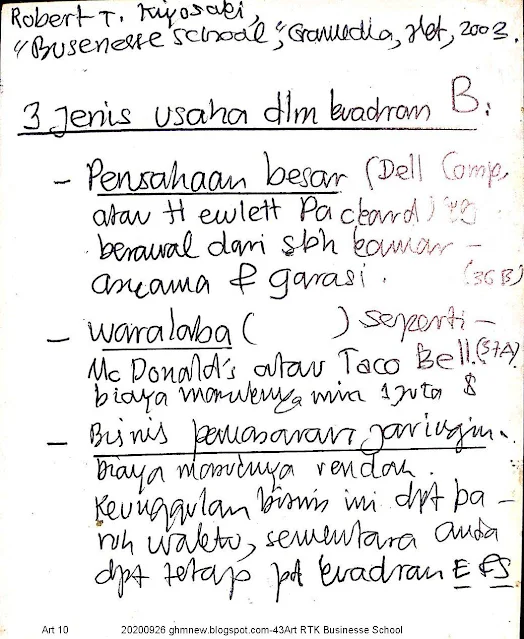 Robert T. Kiyosaki,
"Businesse school", Gramedia, Jkt, 2003.
3 Jenis usaha dlm kuadran B:
- Perusahaan besar (Dell Comp,
atau Hewlett Packard) yg
berawal dari sbh kamar -
asrama & garasi. (36B)
- Waralaba ( ) seperti -
Mc Donald's atau Taco Bell. (37A)
biaya masuknya min 1 juta $
- Bisnis pemasaran jaringan.
biaya masuknya rendah.
Keunggulan bisnis ini dpt pa-
ruh waktu, sementara anda
dpt tetap pd kuadran E & S
Art 10 20200926 ghmnew.blogspot.com-43Art RTK Businesse School